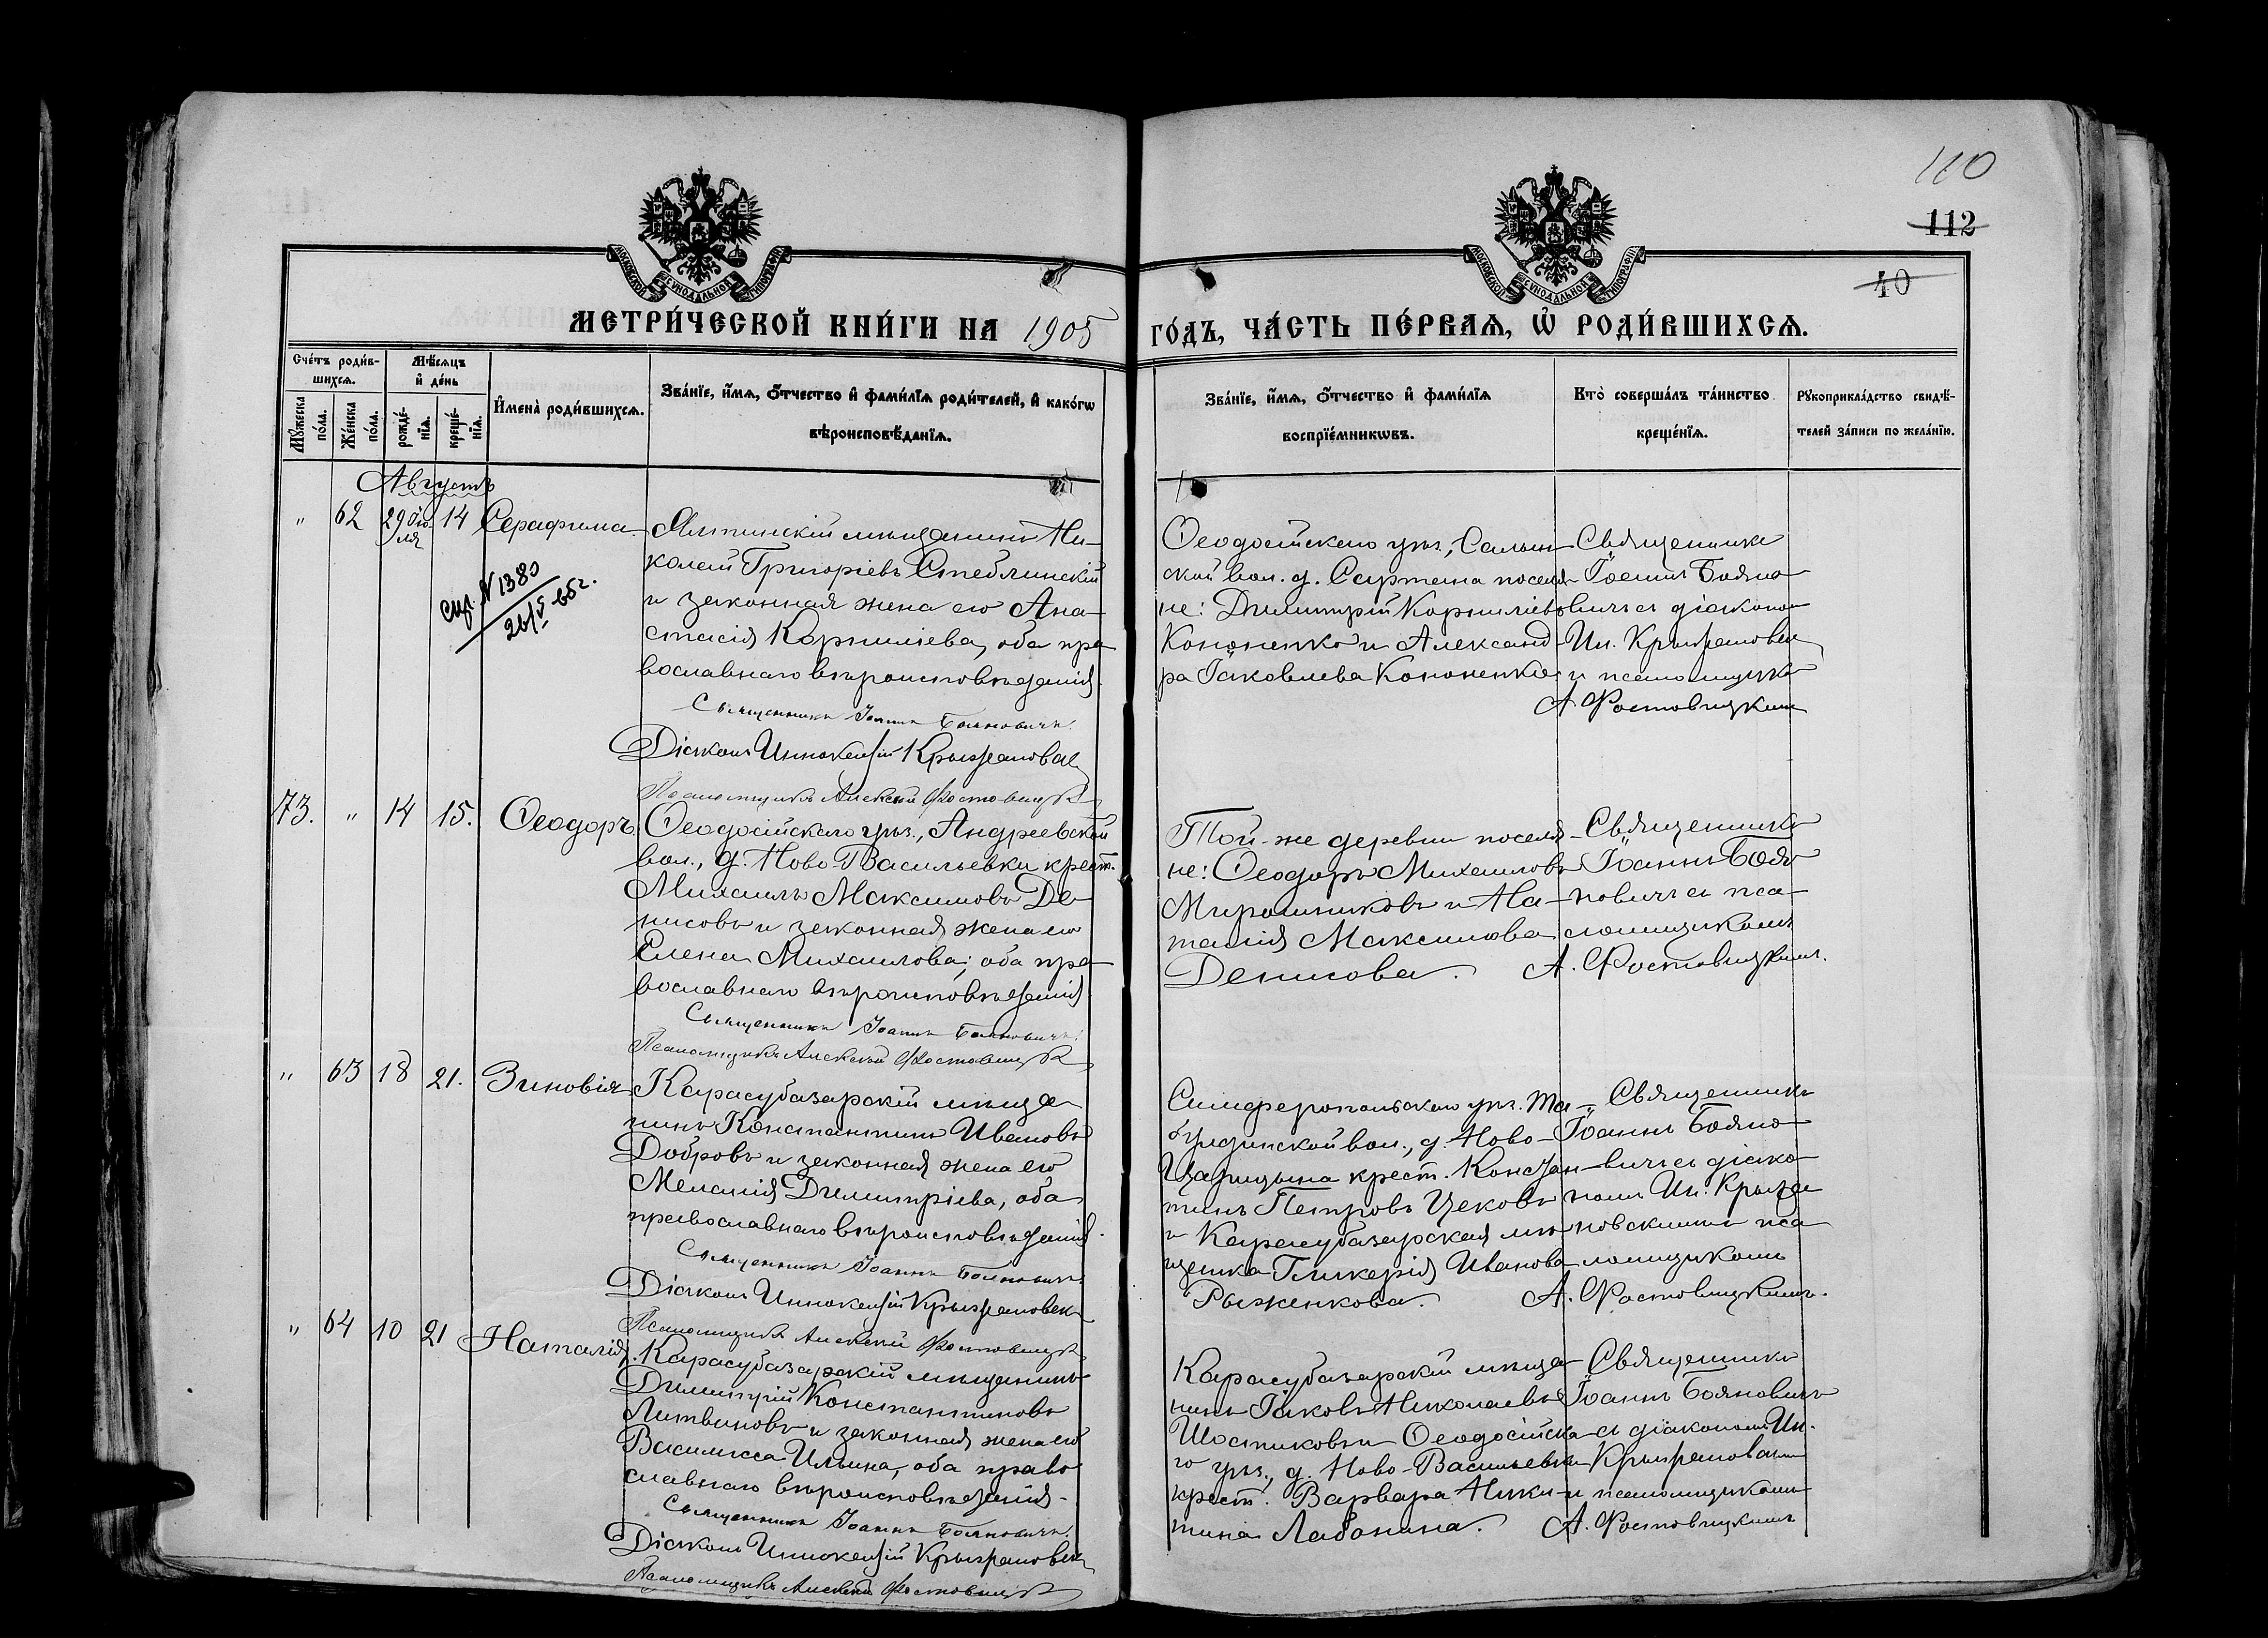 110
112
40
МОСКОВСКОЙ СѴНОДАЛЬНОЙ ТИПОГРАФІИ
МОСКОВСКОЙ СѴНОДАЛЬНОЙ ТИПОГРАФІИ
МЕТРИ́ЧЕСКОЙ КНИ́ГИ НА 1905
ГО́ДЪ, ЧА́СТЬ ПЕ́РВАѦ, Ѡ҆ РОДИ́ВШИХСѦ.
Сче́тъ роди́в-
шихсѧ.
Мѣ́сѧцъ
и҆ де́нь
Мꙋ́жеска по́ла.
Же́нска по́ла.
рожде́-
нїѧ.
креще́-
нїѧ.
И҆мена̀ роди́вшихсѧ.
Зва́нїе, и҆́мѧ, ѻ҆́тчество и҆ фами́лїѧ роди́телей, и҆ како́гѡ
вѣроисповѣ́данїѧ.
Зва́нїе, и҆́мѧ, ѻ҆́тчество и҆ фами́лїѧ
воспрїе́мникѡвъ.
Кто̀ соверша́лъ та́инство
креще́нїѧ.
Рꙋкоприкла́дство свидѣ́-
телей за́писи по жела́нїю.
Августъ
" 62 29 Ію-
ля 14 Серафима
Спр. N 1380
26/V-65г.
Ялтинскій мѣщанинъ Ни-
колай Григоріевъ Стеблинскій
и законная жена его Ана-
стасія Корниліева, оба пра-
вославнаго вѣроисповѣданія.
Священникъ Іоаннъ Бояновичъ.
Діаконъ Иннокентій Крыжановскій
Псаломщикъ Алексій Фостовицкій
Ѳеодосійскаго уѣз., Салын-
ской вол. д. Сартана поселя-
не: Димитрій Корниліевъ
Кононенко и Александ-
ра Іаковлева Кононенко
Священникъ
Іоаннъ Бояно-
вичъ съ діакономъ
Ин. Крыжановск.
и псаломщик.
А. Фостовицкимъ
73. " 14 15. Ѳеодоръ.
Ѳеодосійскаго уѣз., Андреевской
вол., д. Ново-Васильевки крест.
Михаилъ Максимовъ Де-
нисовъ и законная жена его
Елена Михаилова; оба пра-
вославнаго вѣроисповѣданія
Священникъ Іоаннъ Бояновичъ.
Псаломщикъ Алексій Фостовицкій
Той-же деревни поселя-
не: Ѳеодоръ Михаиловъ
Мирошниковъ и На-
талія Максимова
Денисова.
Священникъ
Іоаннъ Боя-
новичъ съ пса-
ломщикомъ
А. Фостовицкимъ.
" 63 18 21. Зиновія
Карасубазарскій мѣща-
нинъ Константинъ Ивановъ
Добровъ и законная жена его
Меланія Димитріева, оба
православнаго вѣроисповѣданія.
Священникъ Іоаннъ Бояновичъ
Діаконъ Иннокентій Крыжановскій
Псаломщикъ Алексій Фостовицкій
Симферопольскаго уѣз. Та-
булдинской вол., д. Ново-
Царицына крест. Констан-
тинъ Петровъ Цековъ
и Карасубазарская мѣ-
щанка Гликерія Иванова
Рыженкова.
Священникъ
Іоаннъ Бояно-
вичъ съ діако-
номъ Ин. Крыжа-
новскимъ и пса-
ломщикомъ
А. Фостовицкимъ.
" 64 10 21 Наталія.
Карасубазарскій мѣщанинъ
Димитрій Константиновъ
Литвиновъ и законная жена его
Василисса Ильина, оба право-
славнаго вѣроисповѣданія.
Священникъ Іоаннъ Бояновичъ.
Діаконъ Иннокентій Крыжановскій
Псаломщикъ Алексій Фостовицкій
Карасубазарскій мѣща-
нинъ Іаковъ Николаевъ
Шостиковъ и Ѳеодосійска-
го уѣз., д. Ново-Васильевки
крест. Варвара Ники-
тина Лабонина.
Священникъ
Іоаннъ Бояновичъ
съ діакономъ Ин.
Крыжановскимъ
и псаломщикомъ
А. Фостовицкимъ